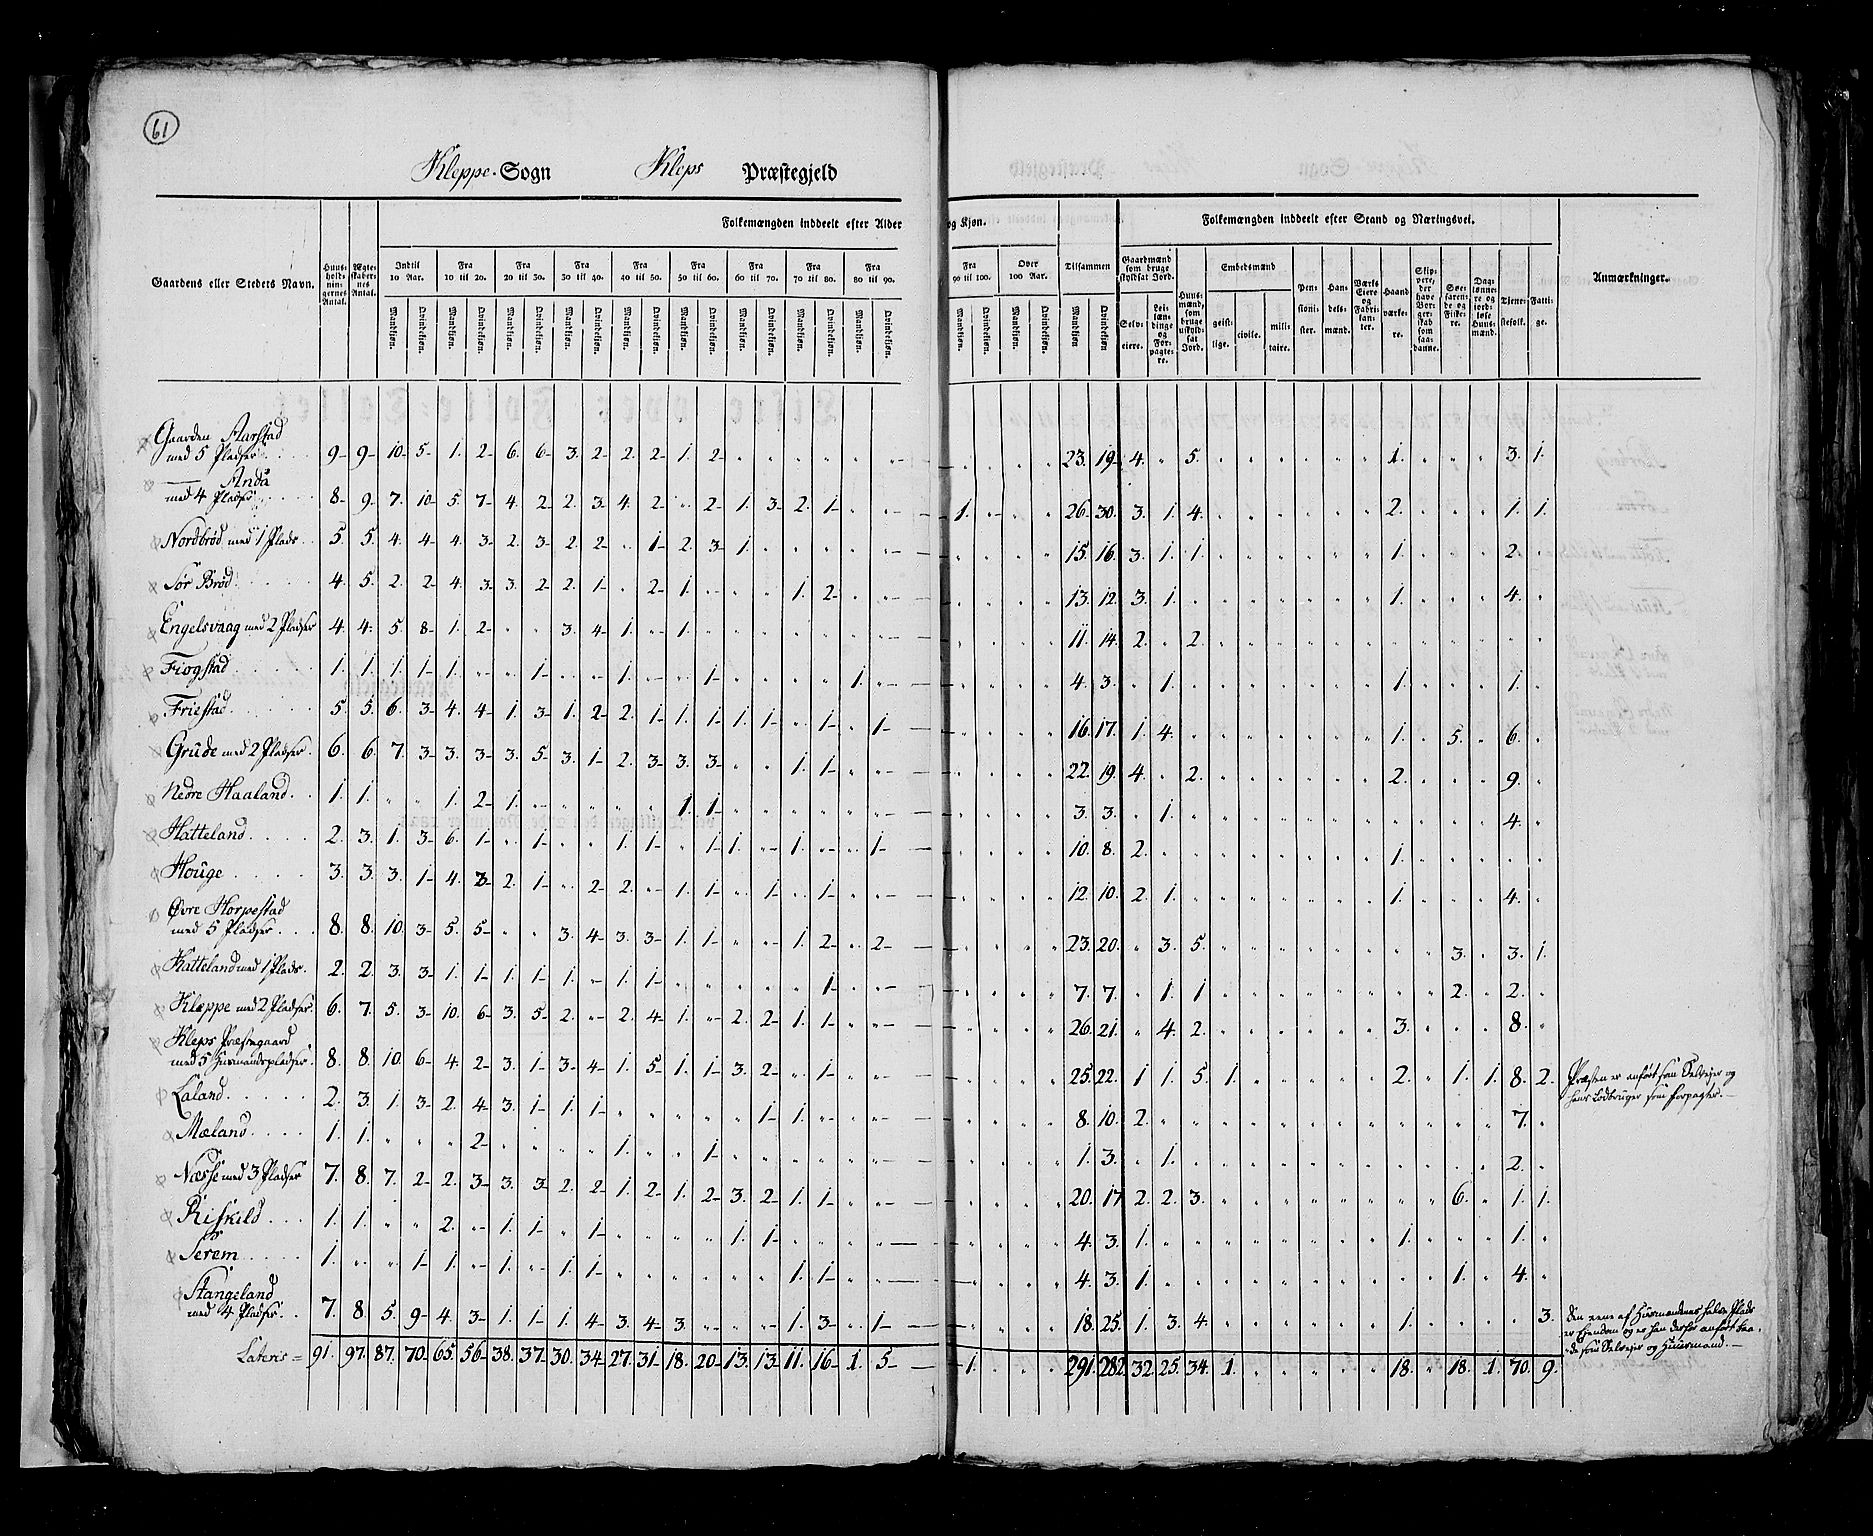 61
Kleppe Sogn Kleps Præstegjeld
Folkemængden inddeelt efter Alder og Kjøn. Folkemængden inddeelt efter Stand og Næringsvei.
Gaardens eller Stedets Navn. Huusholdningernes Antal. Ægteskabernes Antal. Indtil 10 Aar. Fra 10 til 20. Fra 20 til 30. Fra 30 til 40. Fra 40 til 50. Fra 50 til 60. Fra 60 til 70. Fra 70 til 80. Fra 80 til 90. Fra 90 til 100. Over 100 Aar. Tilsammen Gaardmænd som bruge skyldsat Jord. Huusmænd, som bruge uskyldsat Jord. Embedsmænd Pensionister. Handelsmænd. Værks Eiere og Fabrikanter. Haandværkere. Skippere, der have Borgerskab som saadanne. Søefarende og Fiskere. Daglønnere og jordløse Huusmænd. Tjenestefolk. Fattige. Anmærkninger.
Mandkjøn. Qvindekjøn. Selveiere. Leilændinge og Forpagtere. geistlige. civile. militaire.
Gaarden Aarstad
med 5 Pladser 9 9 10 5 1 2 6 6 3 2 2 2 1 2 23 19 4 5 1 3 1
Anda
med 4 Pladser 8 9 7 10 5 7 4 2 2 3 4 2 2 1 3 2 1 1 26 30 3 1 4 2 1 1
Nordbrød med 1 Plads 5 5 4 4 4 3 2 3 2 2 1 2 3 1 15 16 3 1 1 1 2
Sør Brød 4 5 2 2 4 3 3 2 2 1 2 1 1 2 13 12 3 1 1 4
Engelsvaag med 2 Pladser 4 4 5 8 1 2 3 4 1 1 11 14 2 2
Fiogstad 1 1 1 1 1 1 1 1 1 4 3 1 1 1
Friestad 5 5 6 3 4 4 1 3 1 2 2 1 1 1 1 1 1 1 16 17 1 4 1 5 6
Grude med 2 Pladser 6 6 7 3 3 3 3 5 3 1 2 3 3 3 1 1 22 19 4 2 2 9
Nedre Haaland 1 1 1 2 1 1 1 3 3 1 4
Hatteland 2 3 1 3 6 1 1 1 1 1 1 1 1 10 8 2 1
Houge 3 3 3 1 4 3 2 1 2 2 1 1 1 1 12 10 2 1 1 4
Øvre Horpestad
med 5 Pladser 8 8 10 3 5 5 3 4 3 3 1 1 1 2 2 23 20 3 5 3 3 1
Katteland med 1 Plads 2 2 3 3 1 1 1 1 1 1 1 1 7 7 1 1 2 2
Kleppe med 2 Pladser 6 7 5 3 10 6 3 5 2 2 4 1 2 2 1 1 26 21 4 2 3 8
Kleps Præstegaard
med 5 Husmandspladser 8 8 10 6 4 2 3 1 3 4 1 5 1 1 3 2 1 25 22 1 1 5 1 2 1 1 8 2 Præsten er anført som Selveier og
hans Lodbruger som Forpagter.
Laland 2 3 1 3 2 4 3 1 1 1 1 1 8 10 2 7
Mæland 1 1 2 1 1 1 3 1 2
Næsse med 3 Pladser 7 8 7 2 2 3 3 3 2 2 1 2 1 2 3 2 1 1 20 17 2 2 3 6 1 1
Riskild 1 1 2 1 1 1 1 1 4 3 1 1 1
Serem 1 1 1 1 1 1 1 1 4 3 1 1 4
Stangeland
med 4 Pladser 7 8 5 9 4 3 1 1 1 4 3 4 3 1 3 1 18 25 1 3 4 1 3 Den eene af Huusmændenes halve Plads
er Eiendom og er han derfor anført baade
som Selveier og Huusmand.
Lateris = 91 97 87 70 65 56 38 37 30 34 27 31 18 20 13 13 11 16 1 5 1 291 282 32 25 34 1 18 18 1 70 9